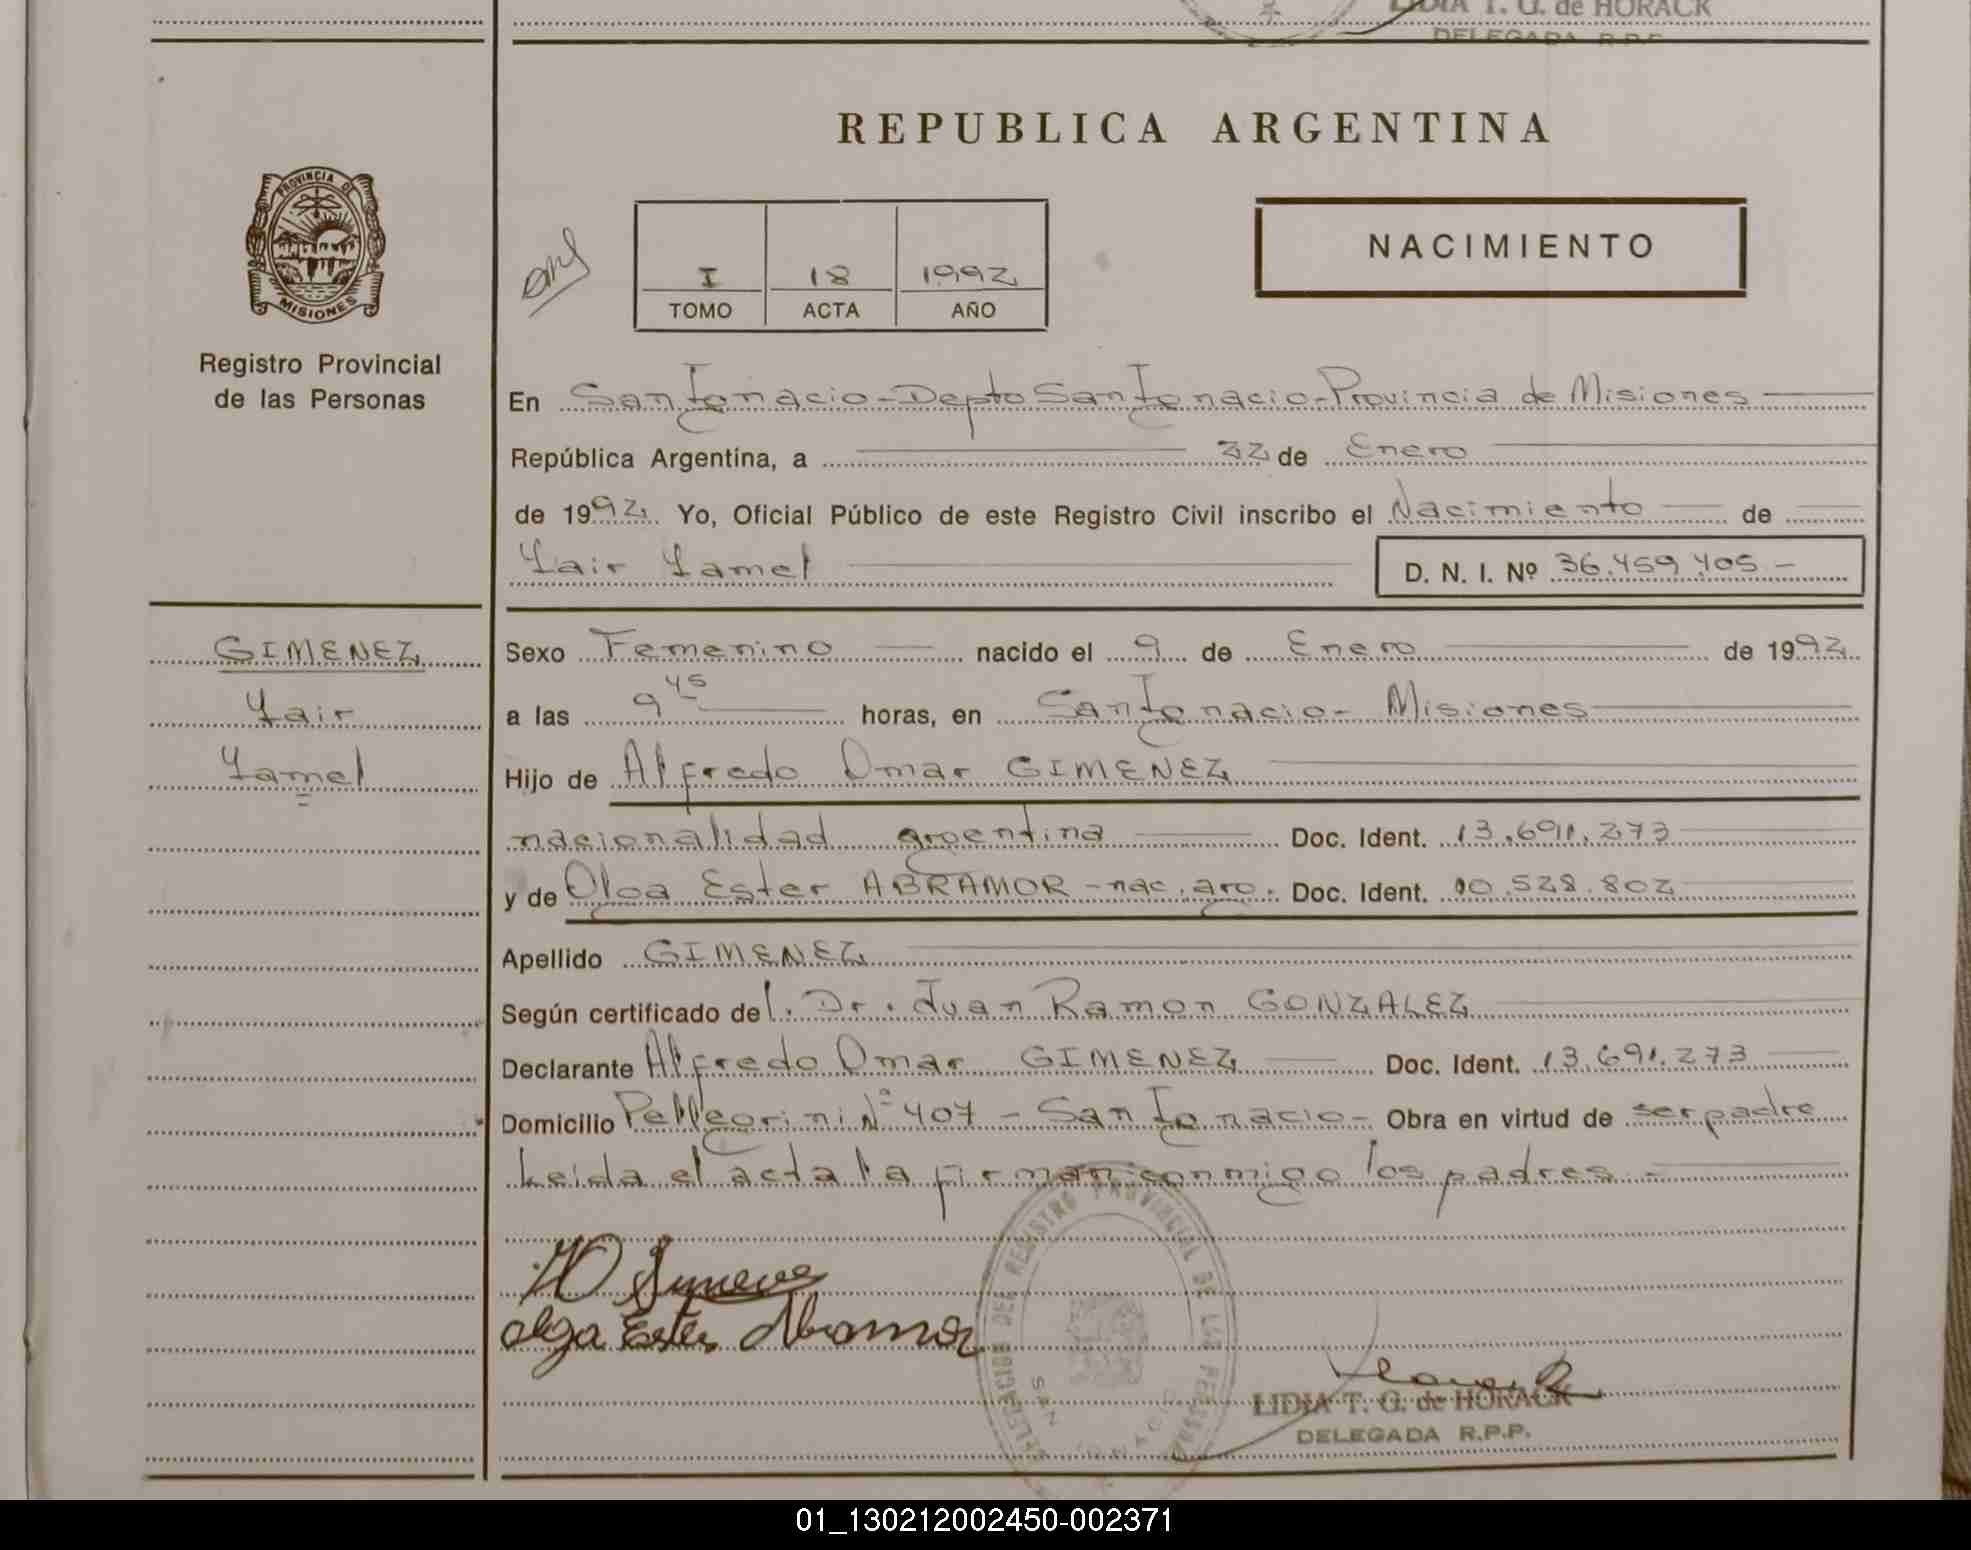 LIDIA T. G. de HORACK
DELEGADA R.P.P.
REPUBLICA ARGENTINA
PROVINCIA DE
MISIONES
Registro Provincial
de las Personas
I 18 1992
TOMO ACTA AÑO
NACIMIENTO
En San Ignacio - Depto San Ignacio - Provincia de Misiones
República Argentina, a 22 de Enero
de 1992. Yo, Oficial Público de este Registro Civil inscribo el Nacimiento de
Yair Yamel
D. N. I. Nº 36.459.405 -
GIMENEZ
Yair
Yamel
Sexo Femenino nacido el 9 de Enero de 1992
a las 9 45 horas, en San Ignacio - Misiones
Hijo de Alfredo Omar GIMENEZ
nacionalidad argentina Doc. Ident. 13.691.273
y de Olga Ester ABRAMOR - nac. arg. Doc. Ident. 10.528.802
Apellido GIMENEZ
Según certificado del. Dr. Juan Ramon GONZALEZ
Declarante Alfredo Omar GIMENEZ Doc. Ident. 13.691.273
Domicilio Pellegrini Nº 407 - San Ignacio - Obra en virtud de ser padre
Leida el acta la firman conmigo los padres -
Olga Ester Abramor
DELEGACION DEL REGISTRO PROVINCIAL DE LAS PERSONAS
SAN IGNACIO
LIDIA T. G. de HORACK
DELEGADA R.P.P.
01_130212002450-002371